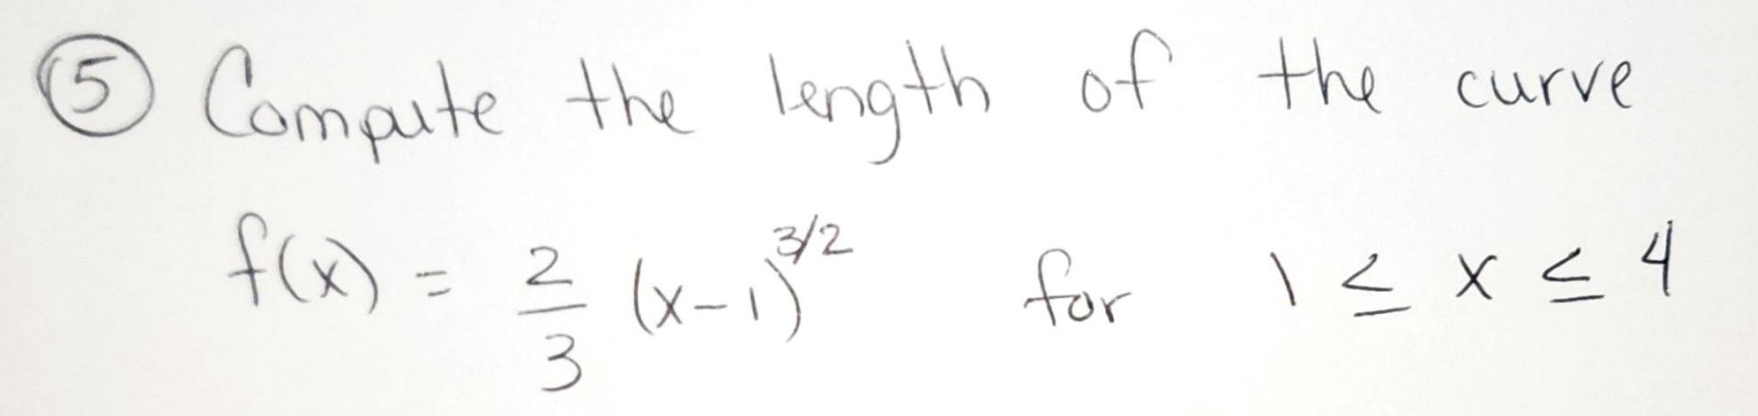 ⑤ Compute the length of the curve
f(x) = 2/3 (x-1)^3/2 for 1 ≤ x ≤ 4